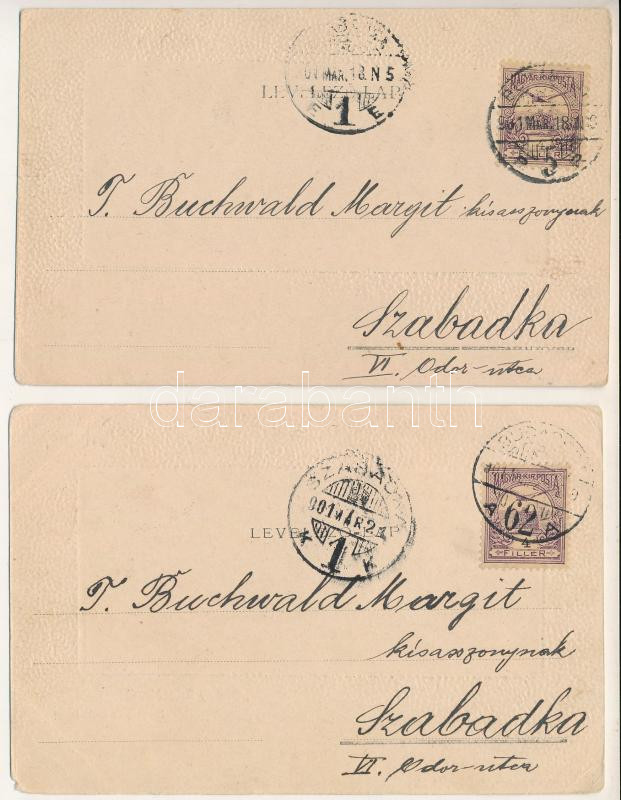 901 MAR. 18. N 5
1
901 MAR. 18.
5
MAGYAR KIR. POSTA
T. Buchwald Margit kisasszonynak
Szabadka
VI. Odor-utca
darabanth
SZABADKA
901 MÁR 2
1
K K
62
A A
MAGYAR KIR. POSTA
4
FILLÉR
T. Buchwald Margit
kisasszonynak
Szabadka
VI. Odor-utca